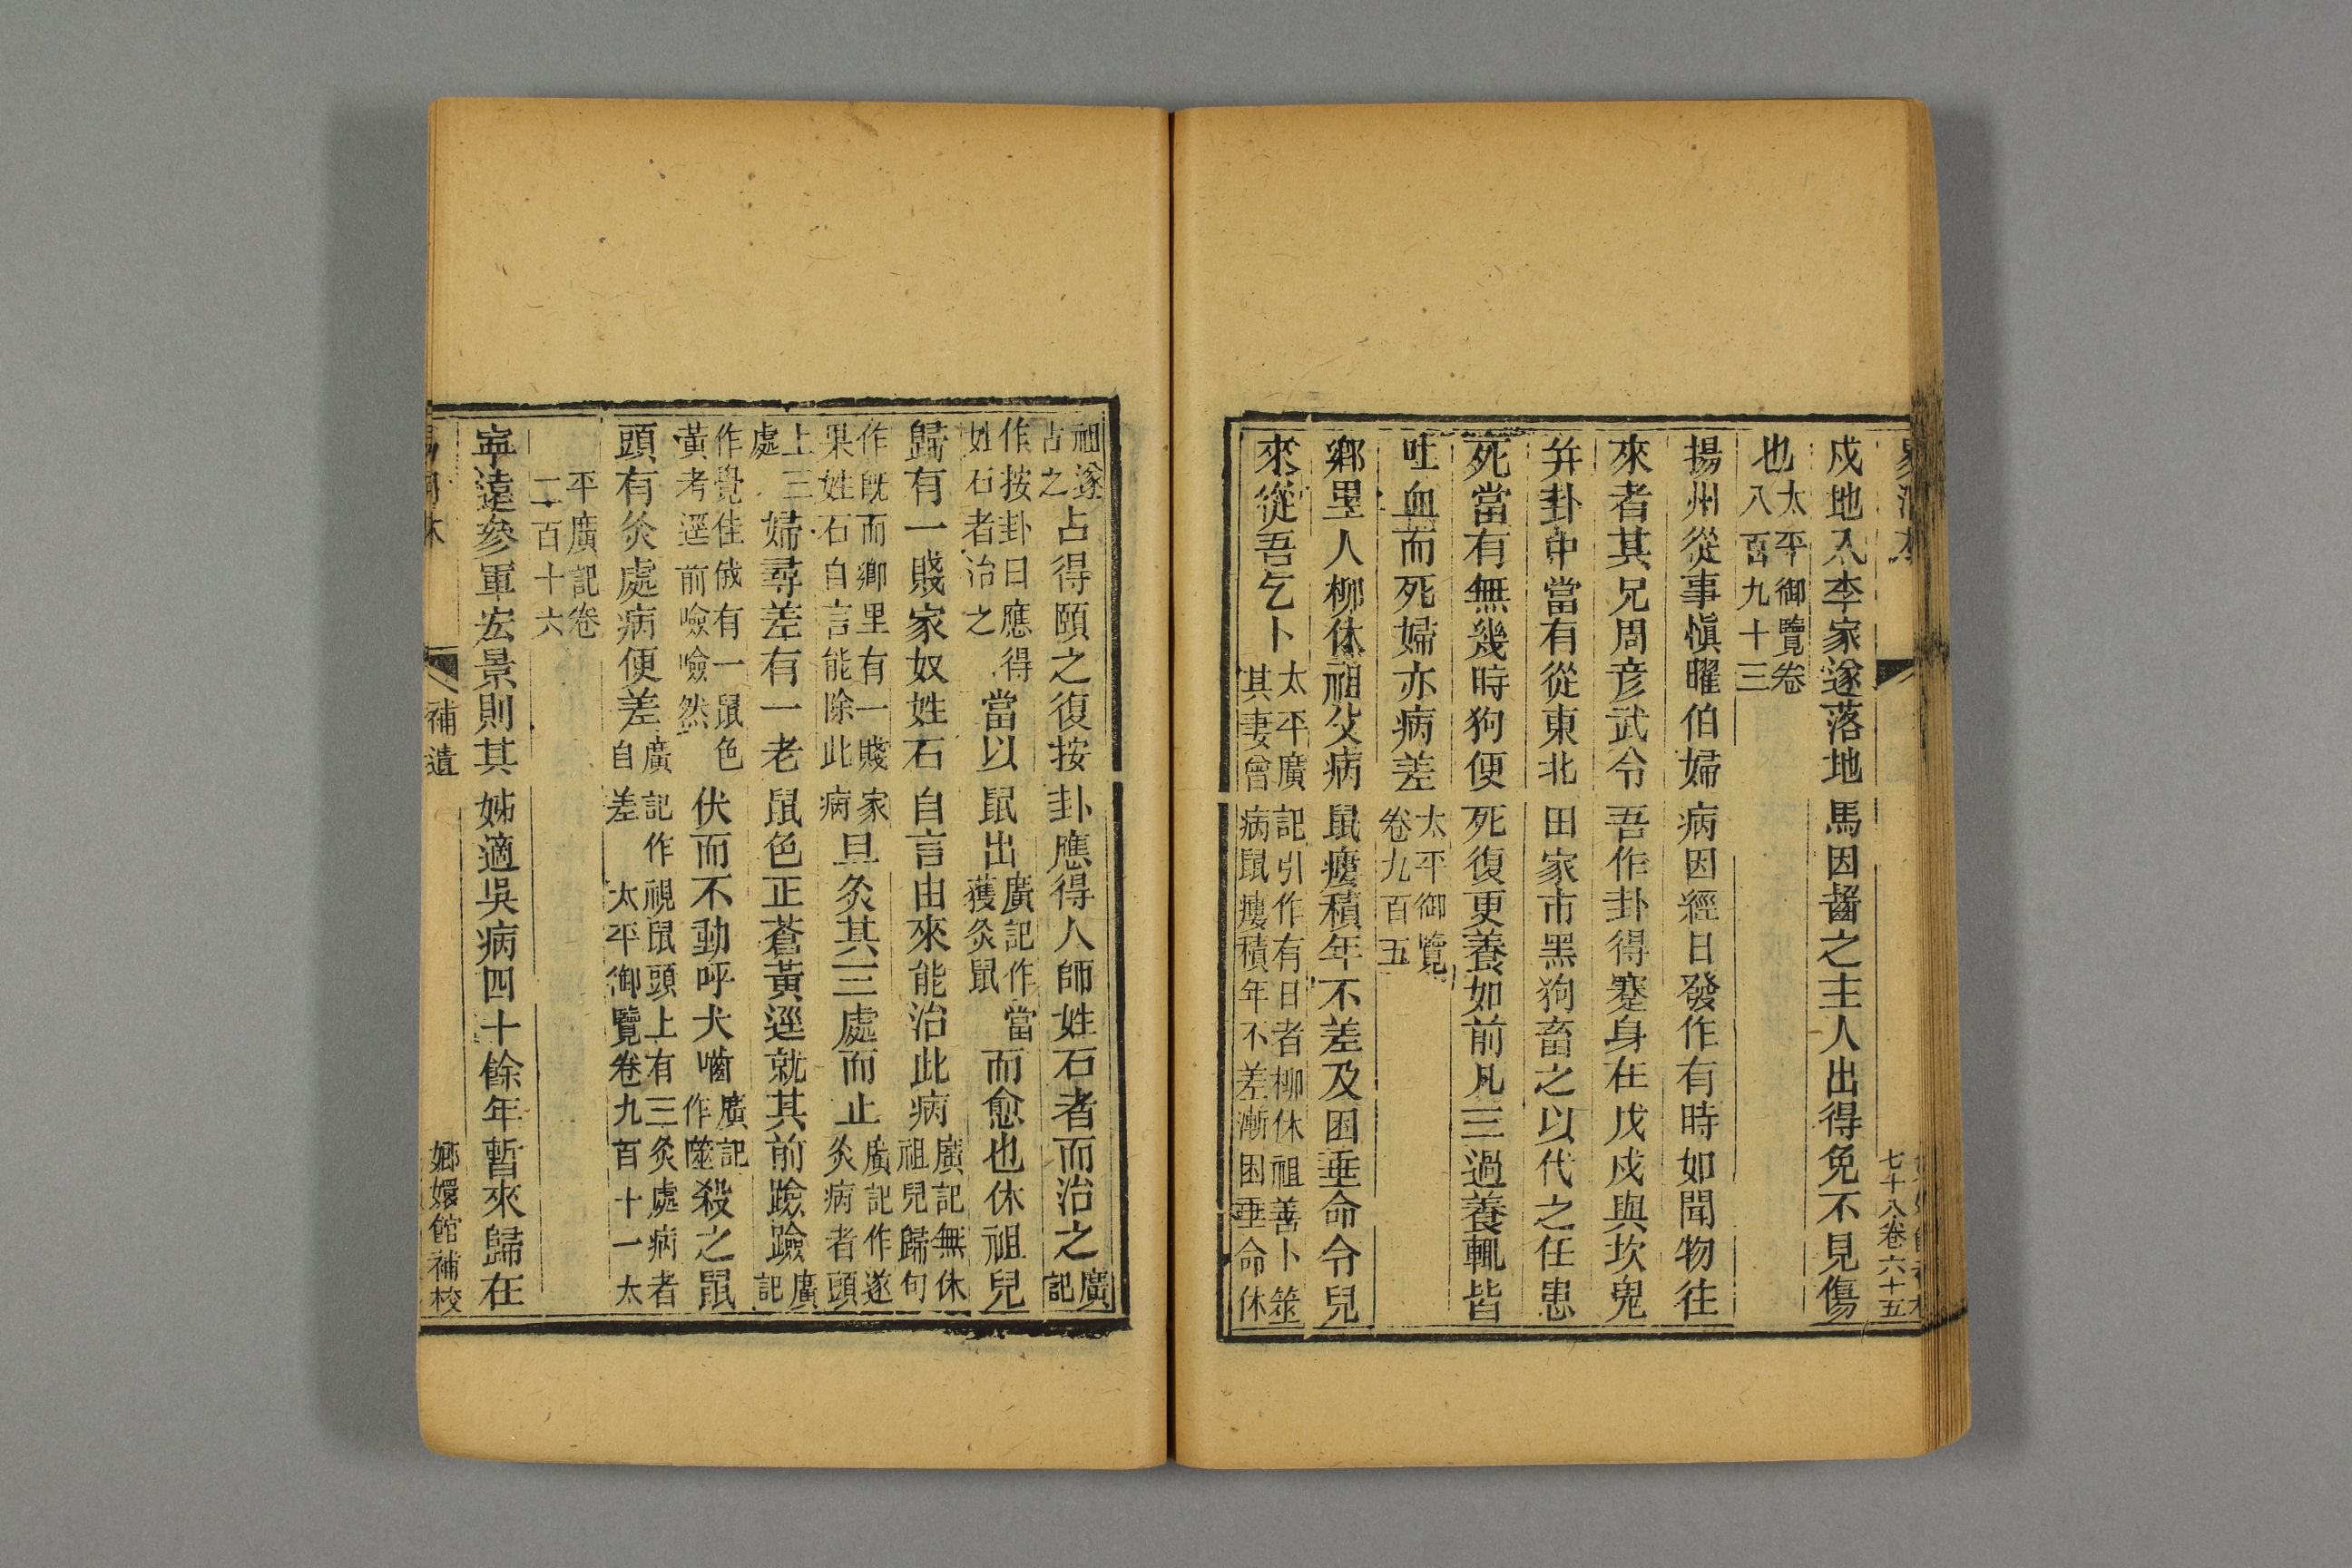 七十八卷六十五
戍地入李家遂落地馬因齧之主人出得免不見傷
也太平御覽卷
八百九十三
揚州從事愼曜伯婦病因經日發作有時如聞物往
來者其兄周彦武令吾作卦得蹇身在戊戍與坎鬼
幷卦中當有從東北田家市黑狗畜之以代之任患
死當有無幾時狗便死復更養如前凡三過養輒皆
吐血而死婦亦病差太平御覽
卷九百五
鄕里人柳休祖父病鼠瘻積年不差及困垂命令兒
來從吾乞卜太平廣記引作有日者柳休祖善卜筮
其妻曾病鼠瘻積年不差漸困垂命休
祖遂
占之占得頤之復按卦應得人師姓石者而治之廣
記
作按卦曰應得
姓石者治之當以鼠出廣記作當
獲灸鼠而愈也休祖兒
歸有一賤家奴姓石自言由來能治此病廣記無休
祖兒歸句
作旣而鄕里有一賤家
果姓石自言能除此病旦灸其三處而止廣記作遂
灸病者頭
上三
處婦尋差有一老鼠色正蒼黃逕就其前譣譣廣
記
作覺佳俄有一鼠色
黃考逕前噞噞然伏而不動呼犬嚙廣記
作噬殺之鼠
頭有灸處病便差廣記作視鼠頭上有三灸處病者
自差 太平御覽卷九百十一太
平廣記卷
二百十六
寧遠參軍宏景則其姊適吳病四十餘年暫來歸在
補遺
嫏嬛館補校